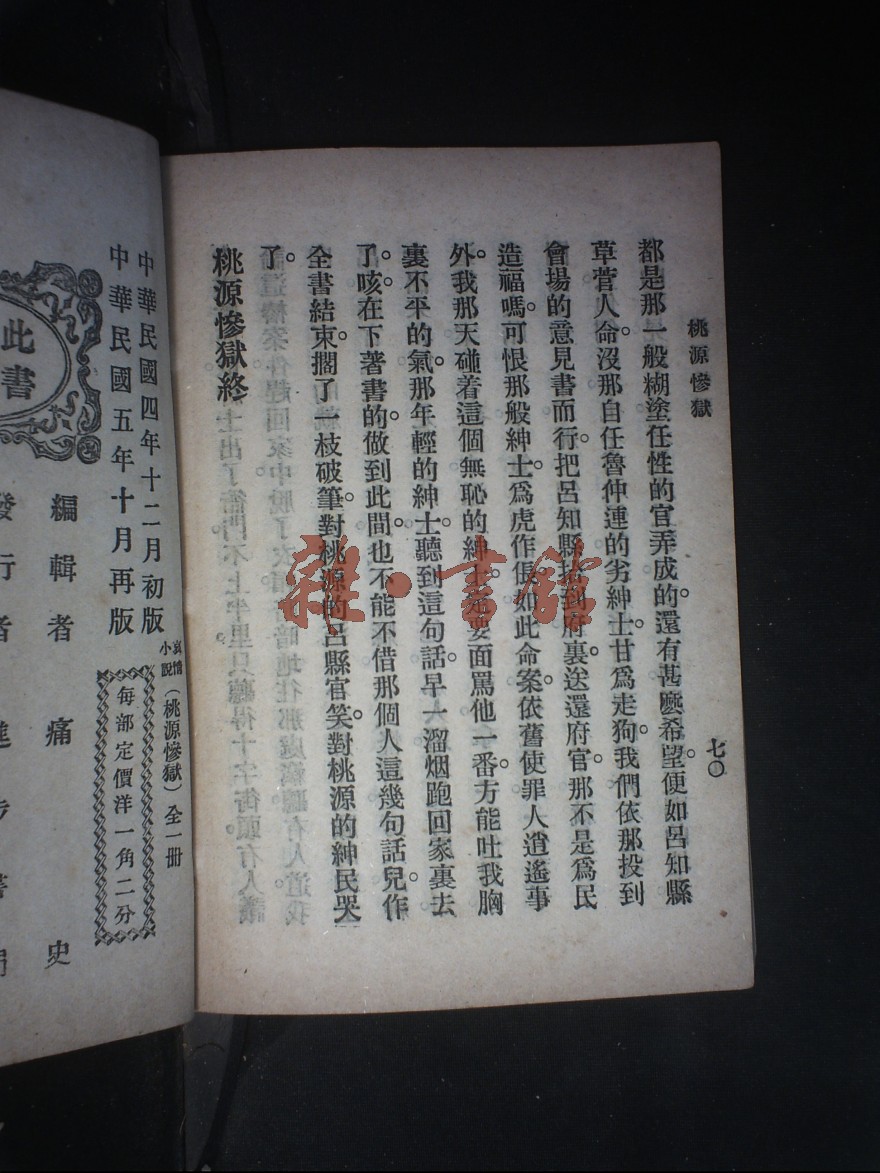 桃源慘獄
七〇
都是那一般糊塗任性的官弄成的。還有甚麼希望。便如呂知縣
草菅人命。沒那自任魯仲連的劣紳士。甘爲走狗。我們依那投到
會場的意見書而行。把呂知縣 到府裏。送還府官。那不是爲民
造福嗎。可恨那般紳士。爲虎作倀。如此命案。依舊使罪人逍遙事
外。我那天碰着這個無恥的紳士。定要面罵他一番。方能吐我胸
裏不平的氣。那年輕的紳士。聽到這句話。早一溜烟跑回家裏去
了。咳。在下著書的。做到此間。也不能不借那個人這幾句話兒。作
全書結束。擱了一枝破筆。對桃源的呂縣官笑。對桃源的紳民哭
了。
桃源慘獄終
中華民國四年十二月初版
中華民國五年十月再版
哀情小說（桃源慘獄）全一册
每部定價洋一角二分
此書
編輯者 痛 史
發行者 進步書局
雜·書館